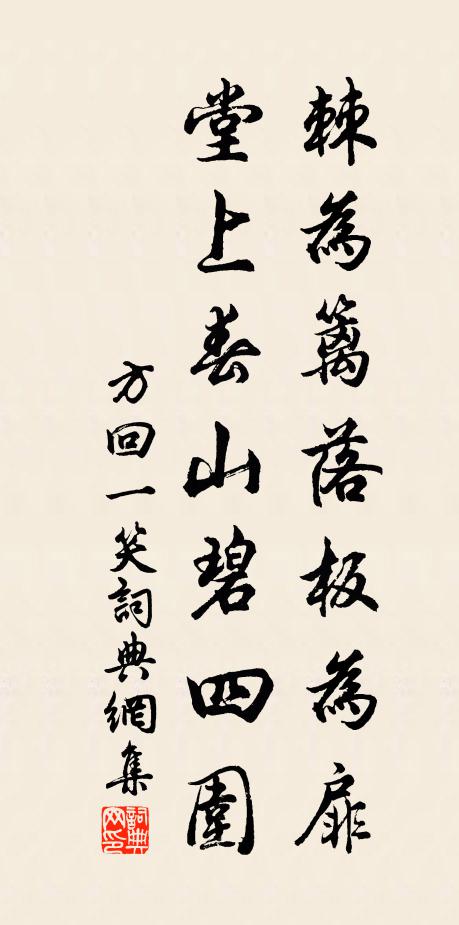 棘為籬落板為扉
堂上春山碧四圍
方回一笑詞典網集
詞典網印